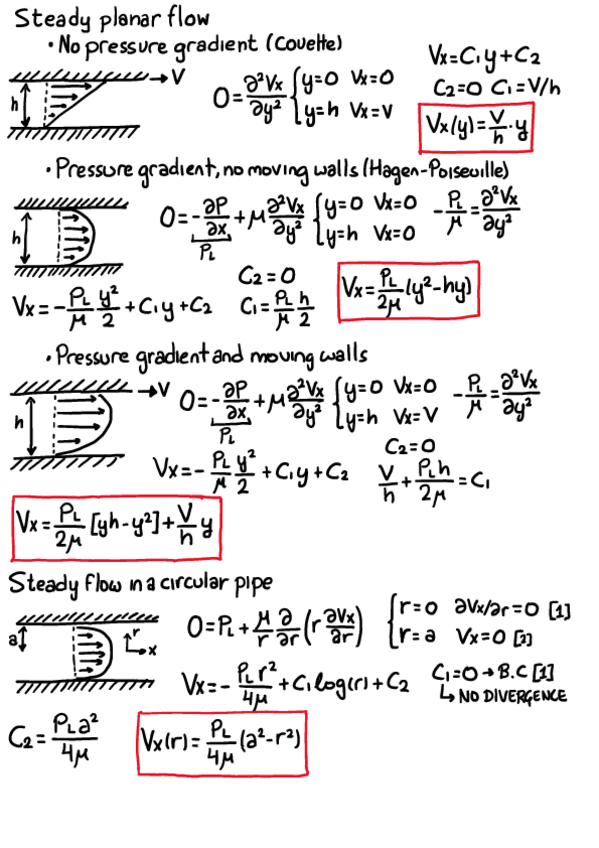 Steady planar flow
• No pressure gradient (Couette)
h → V 0 = ∂²Vx/∂y² { y=0 Vx=0
y=h Vx=V
Vx=C₁y+C₂
C₂=0 C₁=V/h
Vx(y)=V/h·y
• Pressure gradient, no moving walls (Hagen-Poiseuille)
h 0=-∂P/∂x+μ∂²Vx/∂y² { y=0 Vx=0
y=h Vx=0
-PL/μ=∂²Vx/∂y²
PL
Vx=-PL/μ y²/2+C₁y+C₂
C₂=0
C₁=PL/μ h/2
Vx=PL/2μ(y²-hy)
• Pressure gradient and moving walls
h → V 0=-∂P/∂x+μ∂²Vx/∂y² { y=0 Vx=0
y=h Vx=V
-PL/μ=∂²Vx/∂y²
PL
Vx=-PL/μ y²/2+C₁y+C₂
C₂=0
V/h+PLh/2μ=C₁
Vx=PL/2μ[yh-y²]+V/h y
Steady flow in a circular pipe
a r x 0=PL+μ/r ∂/∂r(r ∂Vx/∂r) { r=0 ∂Vx/∂r=0 [1]
r=a Vx=0
Vx=-PLr²/4μ+C₁log(r)+C₂
C₁=0→B.C [1]
↳ NO DIVERGENCE
C₂=PLa²/4μ
Vx(r)=PL/4μ(a²-r²)